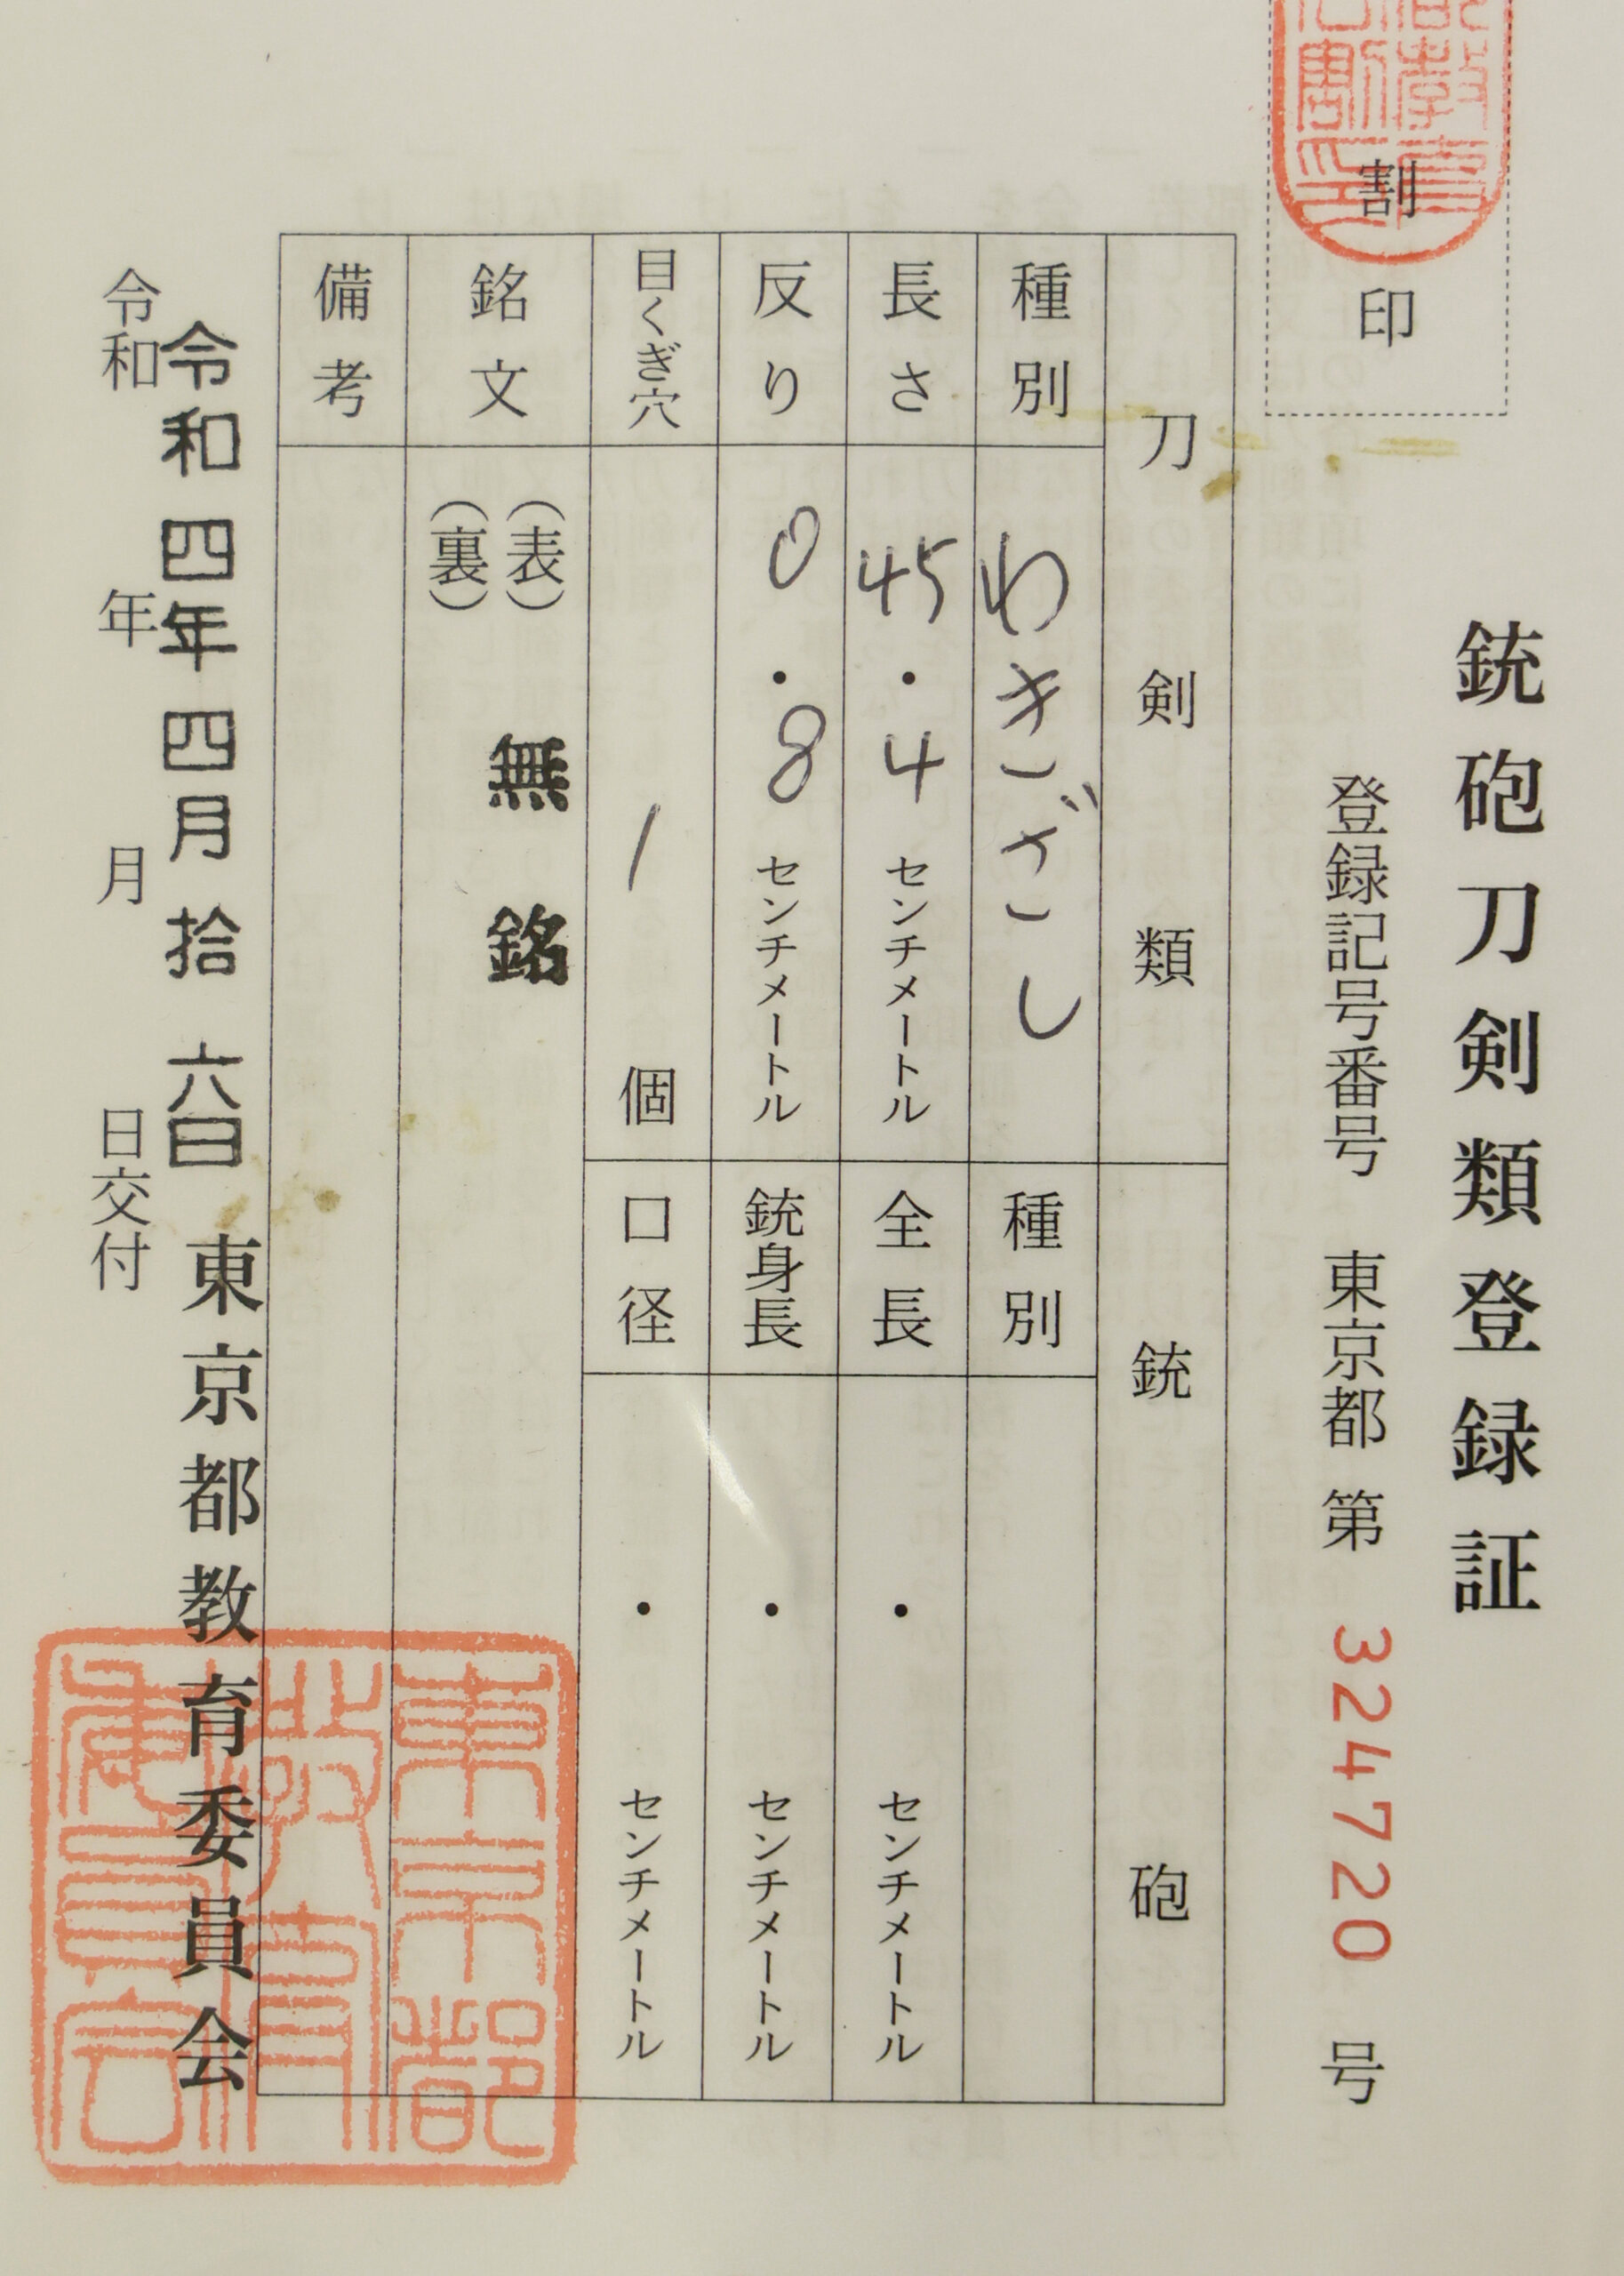 銃砲刀剣類登録証
割印
登録記号番号 東京都 第 324720 号
刀剣類
銃砲
種別 わきざし
種別
長さ 45・4 センチメートル
全長 ・ センチメートル
反り 0・8 センチメートル
銃身長 ・ センチメートル
目くぎ穴 1 個
口径 ・ センチメートル
銘文 (表) 無銘
(裏)
備考
令和四年四月拾六日
東京都教育委員会
令和 年 月 日交付
東京都教育委員会